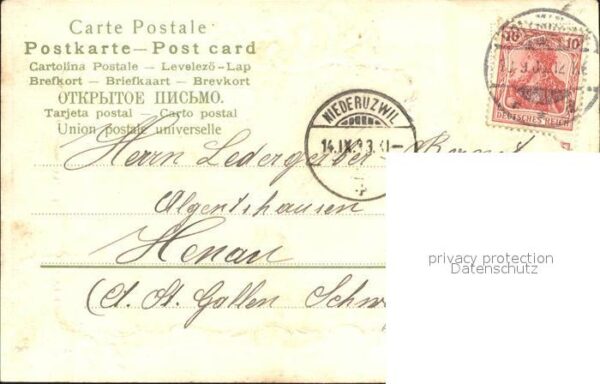 Carte Postale
Postkarte — Post card
Cartolina Postale — Levelező-Lap
Brefkort — Briefkaart — Brevkort
ОТКРЫТОЕ ПИСЬМО.
Tarjeta postal — Carto postal
Union postale universelle
10 10
DEUTSCHES REICH
NIEDERUZWIL
14.IX.
Herrn Ledergerber
Algentshausen
Henau
(Ct. St. Gallen Schw
privacy protection
Datenschutz